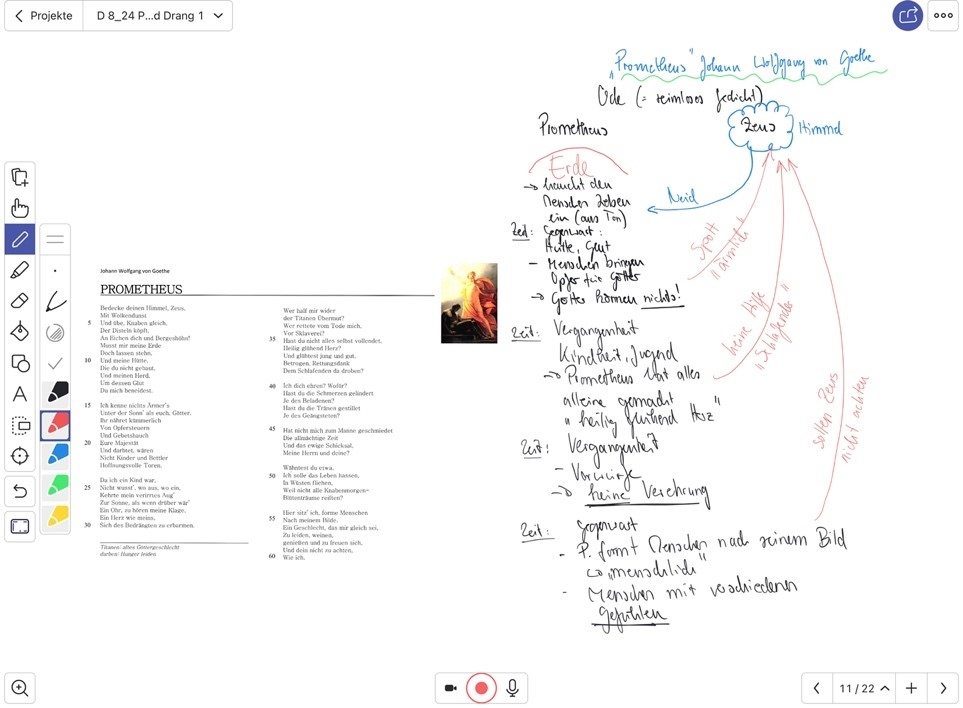 Projekte
D 8_24 P...d Drang 1
Johann Wolfgang von Goethe
PROMETHEUS
Bedecke deinen Himmel, Zeus,
Mit Wolkendunst
5 Und übe, Knaben gleich,
Der Disteln köpft,
An Eichen dich und Bergeshöhn!
Musst mir meine Erde
Doch lassen stehn,
10 Und meine Hütte,
Die du nicht gebaut,
Und meinen Herd,
Um dessen Glut
Du mich beneidest.
15 Ich kenne nichts Ärmer's
Unter der Sonn' als euch, Götter.
Ihr nähret kümmerlich
Von Opfersteuern
Und Gebetshauch
20 Eure Majestät
Und darbtet, wären
Nicht Kinder und Bettler
Hoffnungsvolle Toren.
Da ich ein Kind war,
25 Nicht wusst', wo aus, wo ein,
Kehrte mein verirrtes Aug'
Zur Sonne, als wenn drüber wär'
Ein Ohr, zu hören meine Klage,
Ein Herz wie meins,
30 Sich des Bedrängten zu erbarmen.
Titanen: altes Göttergeschlecht
darben: Hunger leiden
Wer half mir wider
der Titanen Übermut?
Wer rettete vom Tode mich,
Vor Sklaverei?
35 Hast du nicht alles selbst vollendet,
Heilig glühend Herz?
Und glühtest jung und gut,
Betrogen, Rettungsdank
Dem Schlafenden da droben?
40 Ich dich ehren? Wofür?
Hast du die Schmerzen gelindert
Je des Beladenen?
Hast du die Tränen gestillet
Je des Geängsteten?
45 Hat nicht mich zum Manne geschmiedet
Die allmächtige Zeit
Und das ewige Schicksal,
Meine Herrn und deine?
Wähntest du etwa,
50 Ich solle das Leben hassen,
In Wüsten fliehen,
Weil nicht alle Knabenmorgen-
Blütenträume reiften?
Hier sitz' ich, forme Menschen
55 Nach meinem Bilde,
Ein Geschlecht, das mir gleich sei,
Zu leiden, weinen,
genießen und zu freuen sich,
Und dein nicht zu achten,
60 Wie ich.
"Prometheus" Johann Wolfgang von Goethe
Ode (= reimloses Gedicht)
Prometheus
Zeus
Himmel
Erde
Neid
→ haucht den
Menschen Leben
ein (aus Ton)
Zeit: Gegenwart:
Hütte, Glut
- Menschen bringen
Opfer für Götter
→ Götter können nichts!
Spott
"ärmlich"
Zeit: Vergangenheit
Kindheit, Jugend
→ Prometheus hat alles
alleine gemacht
"heilig glühend Herz"
keine Hilfe
"Schlafender"
Zeit: Vergangenheit
- Vorwürfe
→ keine Verehrung
sollen Zeus
nicht achten
Zeit: Gegenwart
- P. formt Menschen nach seinem Bild
↪ "menschlich"
- Menschen mit verschiedenen
Gefühlen
A
11 / 22